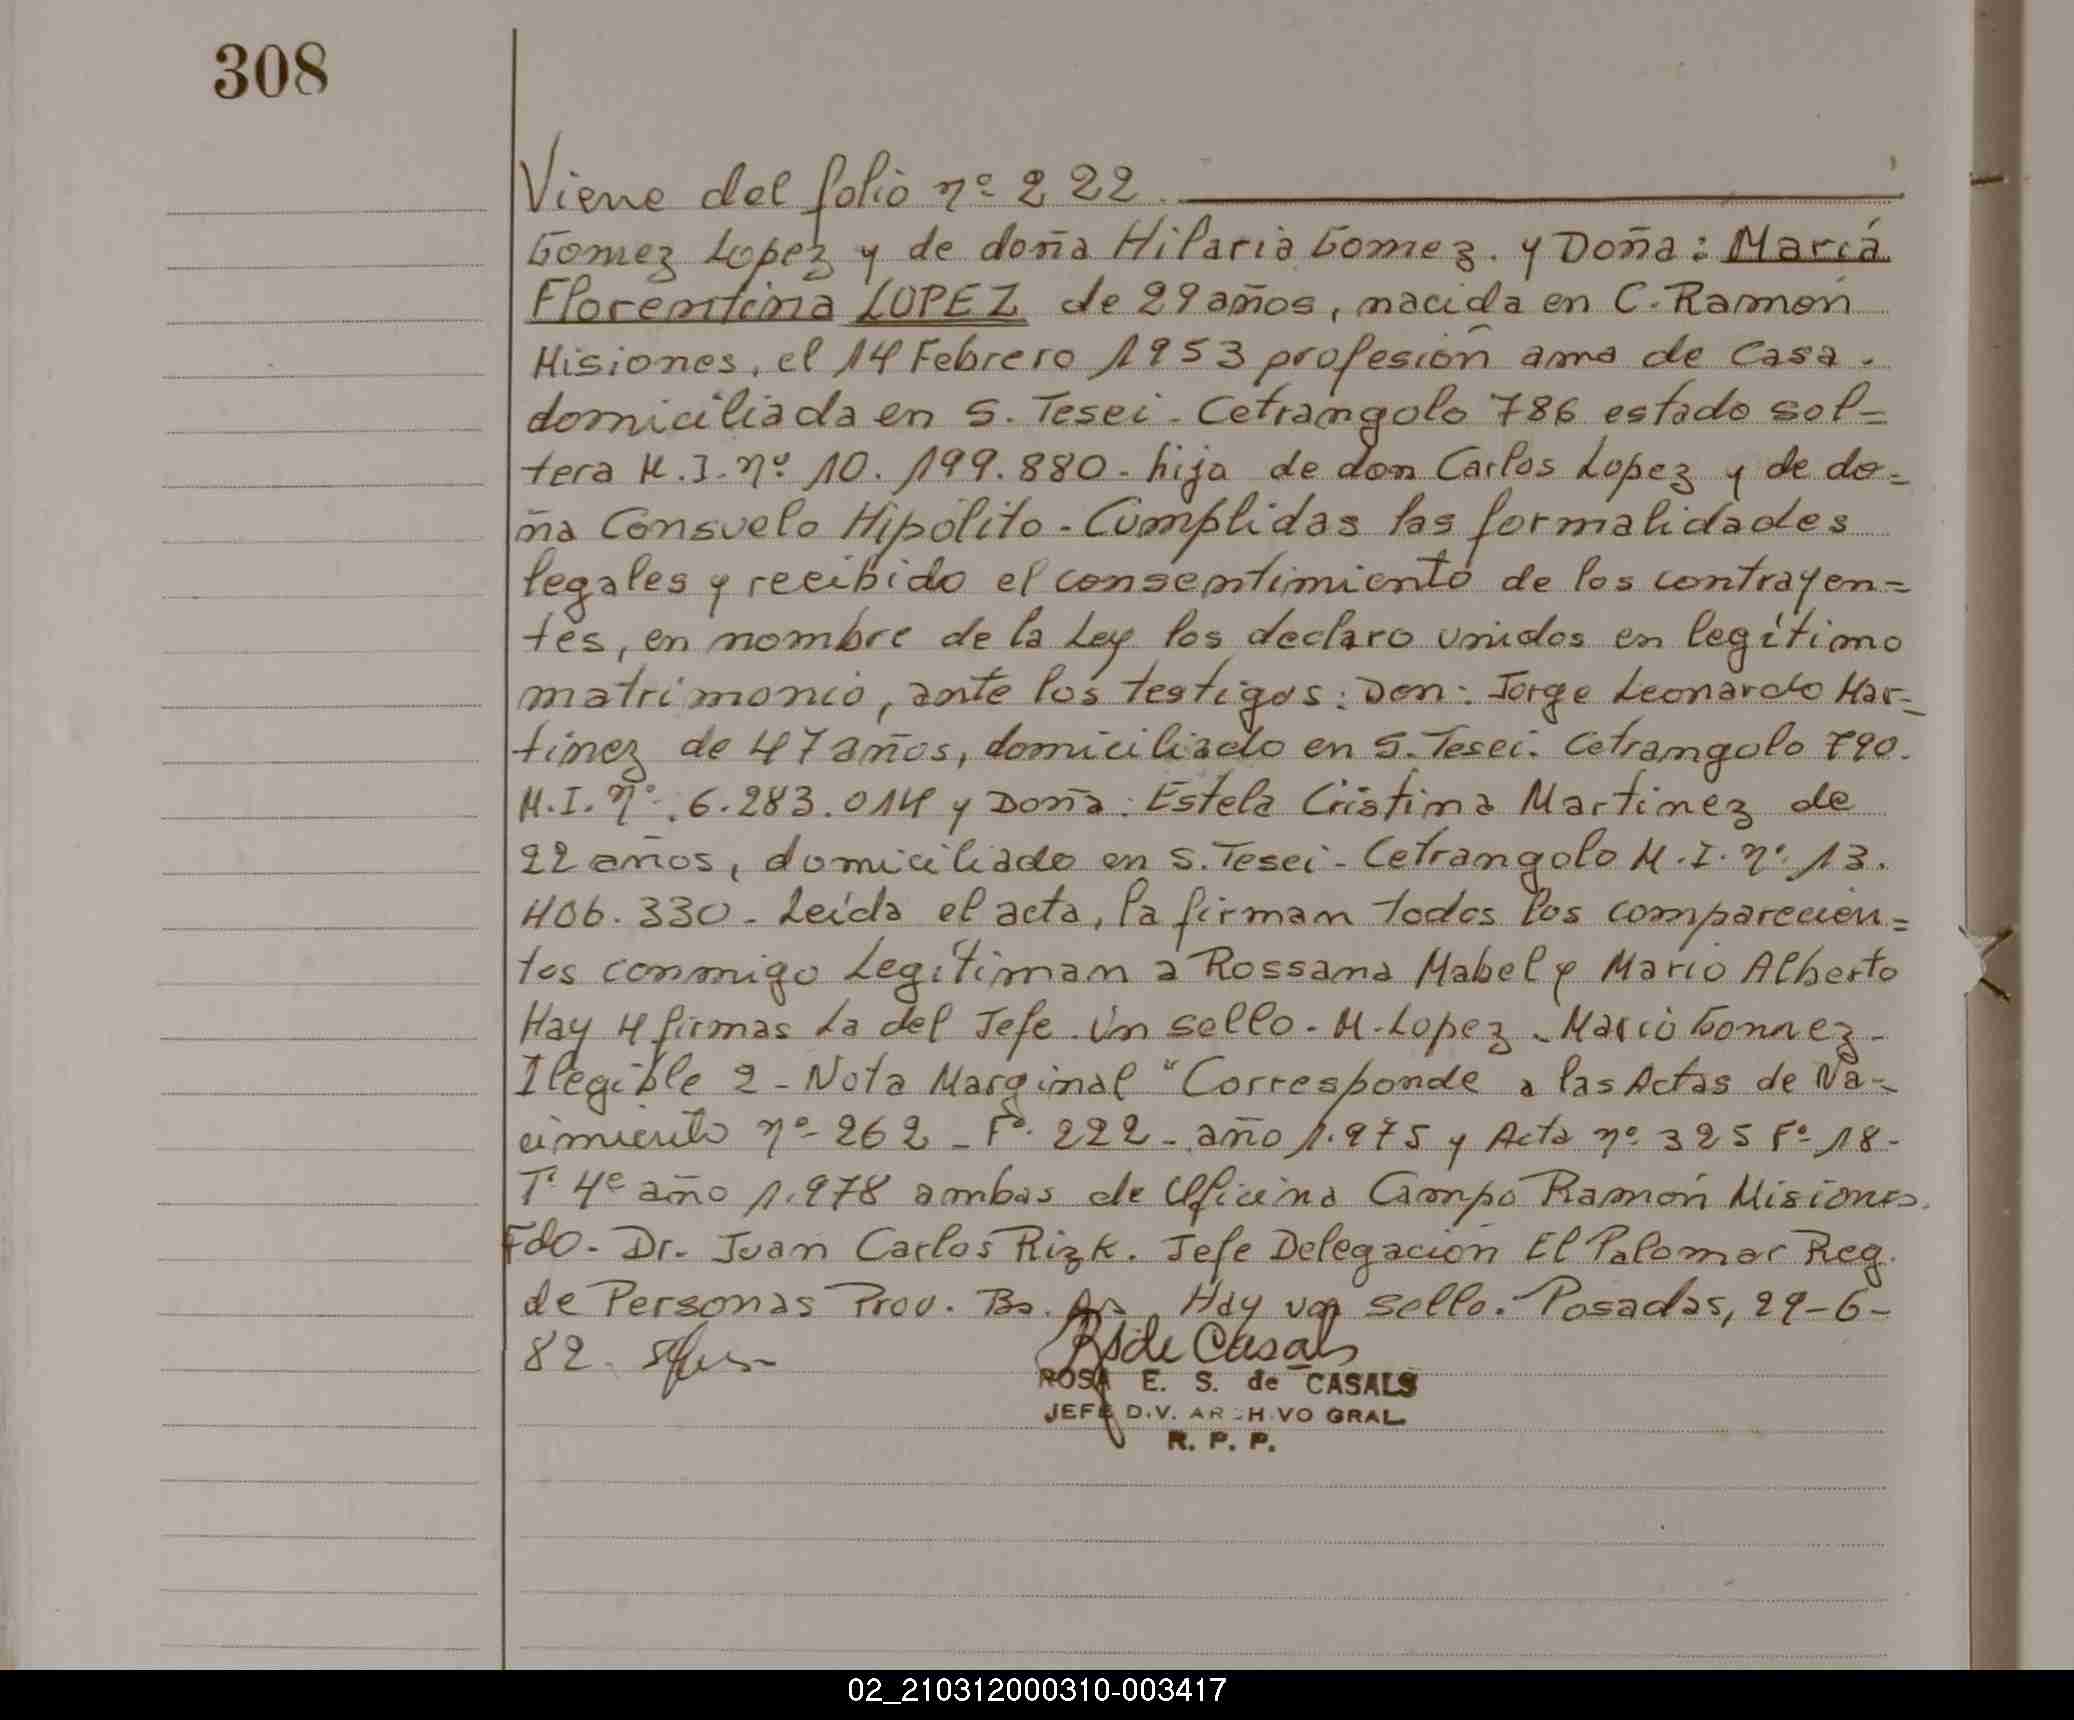 308
Viene del folio nº 222.
Gomez Lopez y de doña Hilaria Gomez. y Doña: Maria
Florentina LOPEZ de 29 años, nacida en C. Ramón
Misiones, el 14 Febrero 1953 profesión ama de casa.
domiciliada en S. Tesei - Cetrangolo 786 estado sol=
tera M.I. nº 10.199.880 - hija de don Carlos Lopez y de do=
ña Consuelo Hipólito - Cumplidas las formalidades
legales y recibido el consentimiento de los contrayen=
tes, en nombre de la Ley los declaro unidos en legítimo
matrimonio, ante los testigos: Don: Jorge Leonardo Mar=
tinez de 47 años, domiciliado en S. Tesei. Cetrangolo 790.
M.I. nº. 6.283.014 y Doña: Estela Cristina Martinez de
22 años, domiciliado en S. Tesei - Cetrangolo M.I. nº 13.
406.330 - Leída el acta, la firman todos los comparecien=
tes conmigo Legitiman a Rossana Mabel y Mario Alberto
Hay 4 firmas La del Jefe. Un sello - M. Lopez - Mario Gomez -
Ilegible 2 - Nota Marginal "Corresponde a las Actas de Na=
cimiento nº 262 - Fº 222 - año 1.975 y Acta nº 325 Fº 18 -
Tº 4º año 1.978 ambas de Oficina Campo Ramón Misiones.
Fdo. Dr. Juan Carlos Rizk. Jefe Delegación El Palomar Reg.
de Personas Prov. Bs. As. Hay un sello. Posadas, 29-6-
82.
RS de Casals
ROSA E. S. de CASALS
JEFE DIV. ARCHIVO GRAL
R. P. P.
02_210312000310-003417